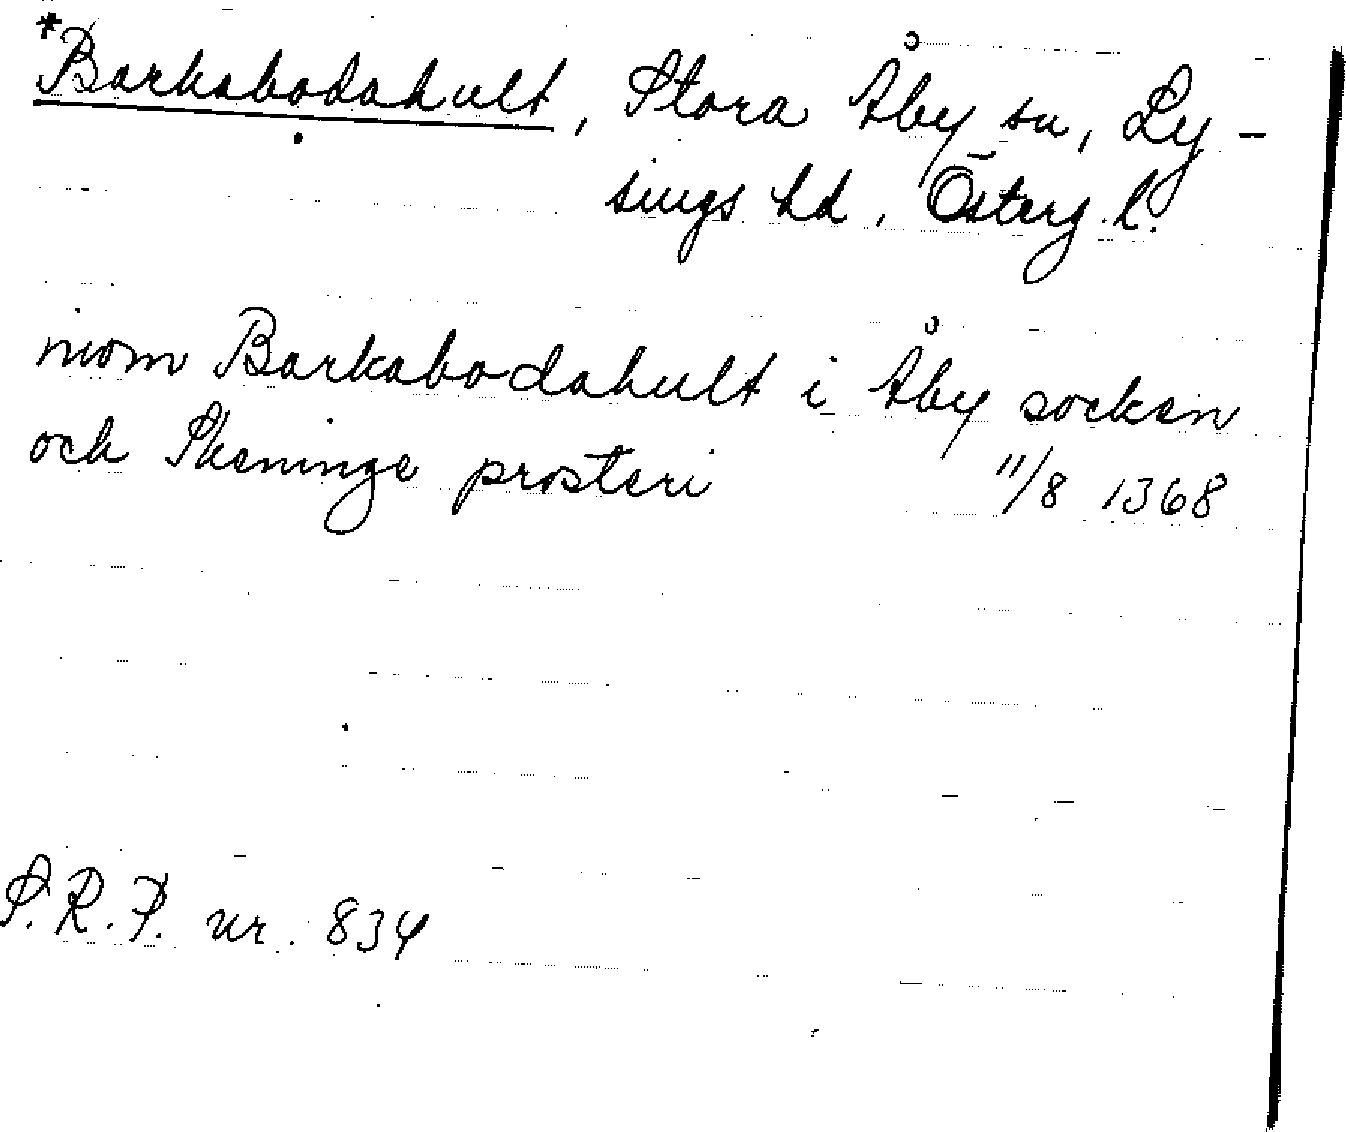 *Barkabodahult, Stora Åby sn, Ly-
sings hd, Österg. l.
inom Barkabodahult i Åby socken
och Skeninge prosteri 11/8 1368
S.R.P. nr. 834